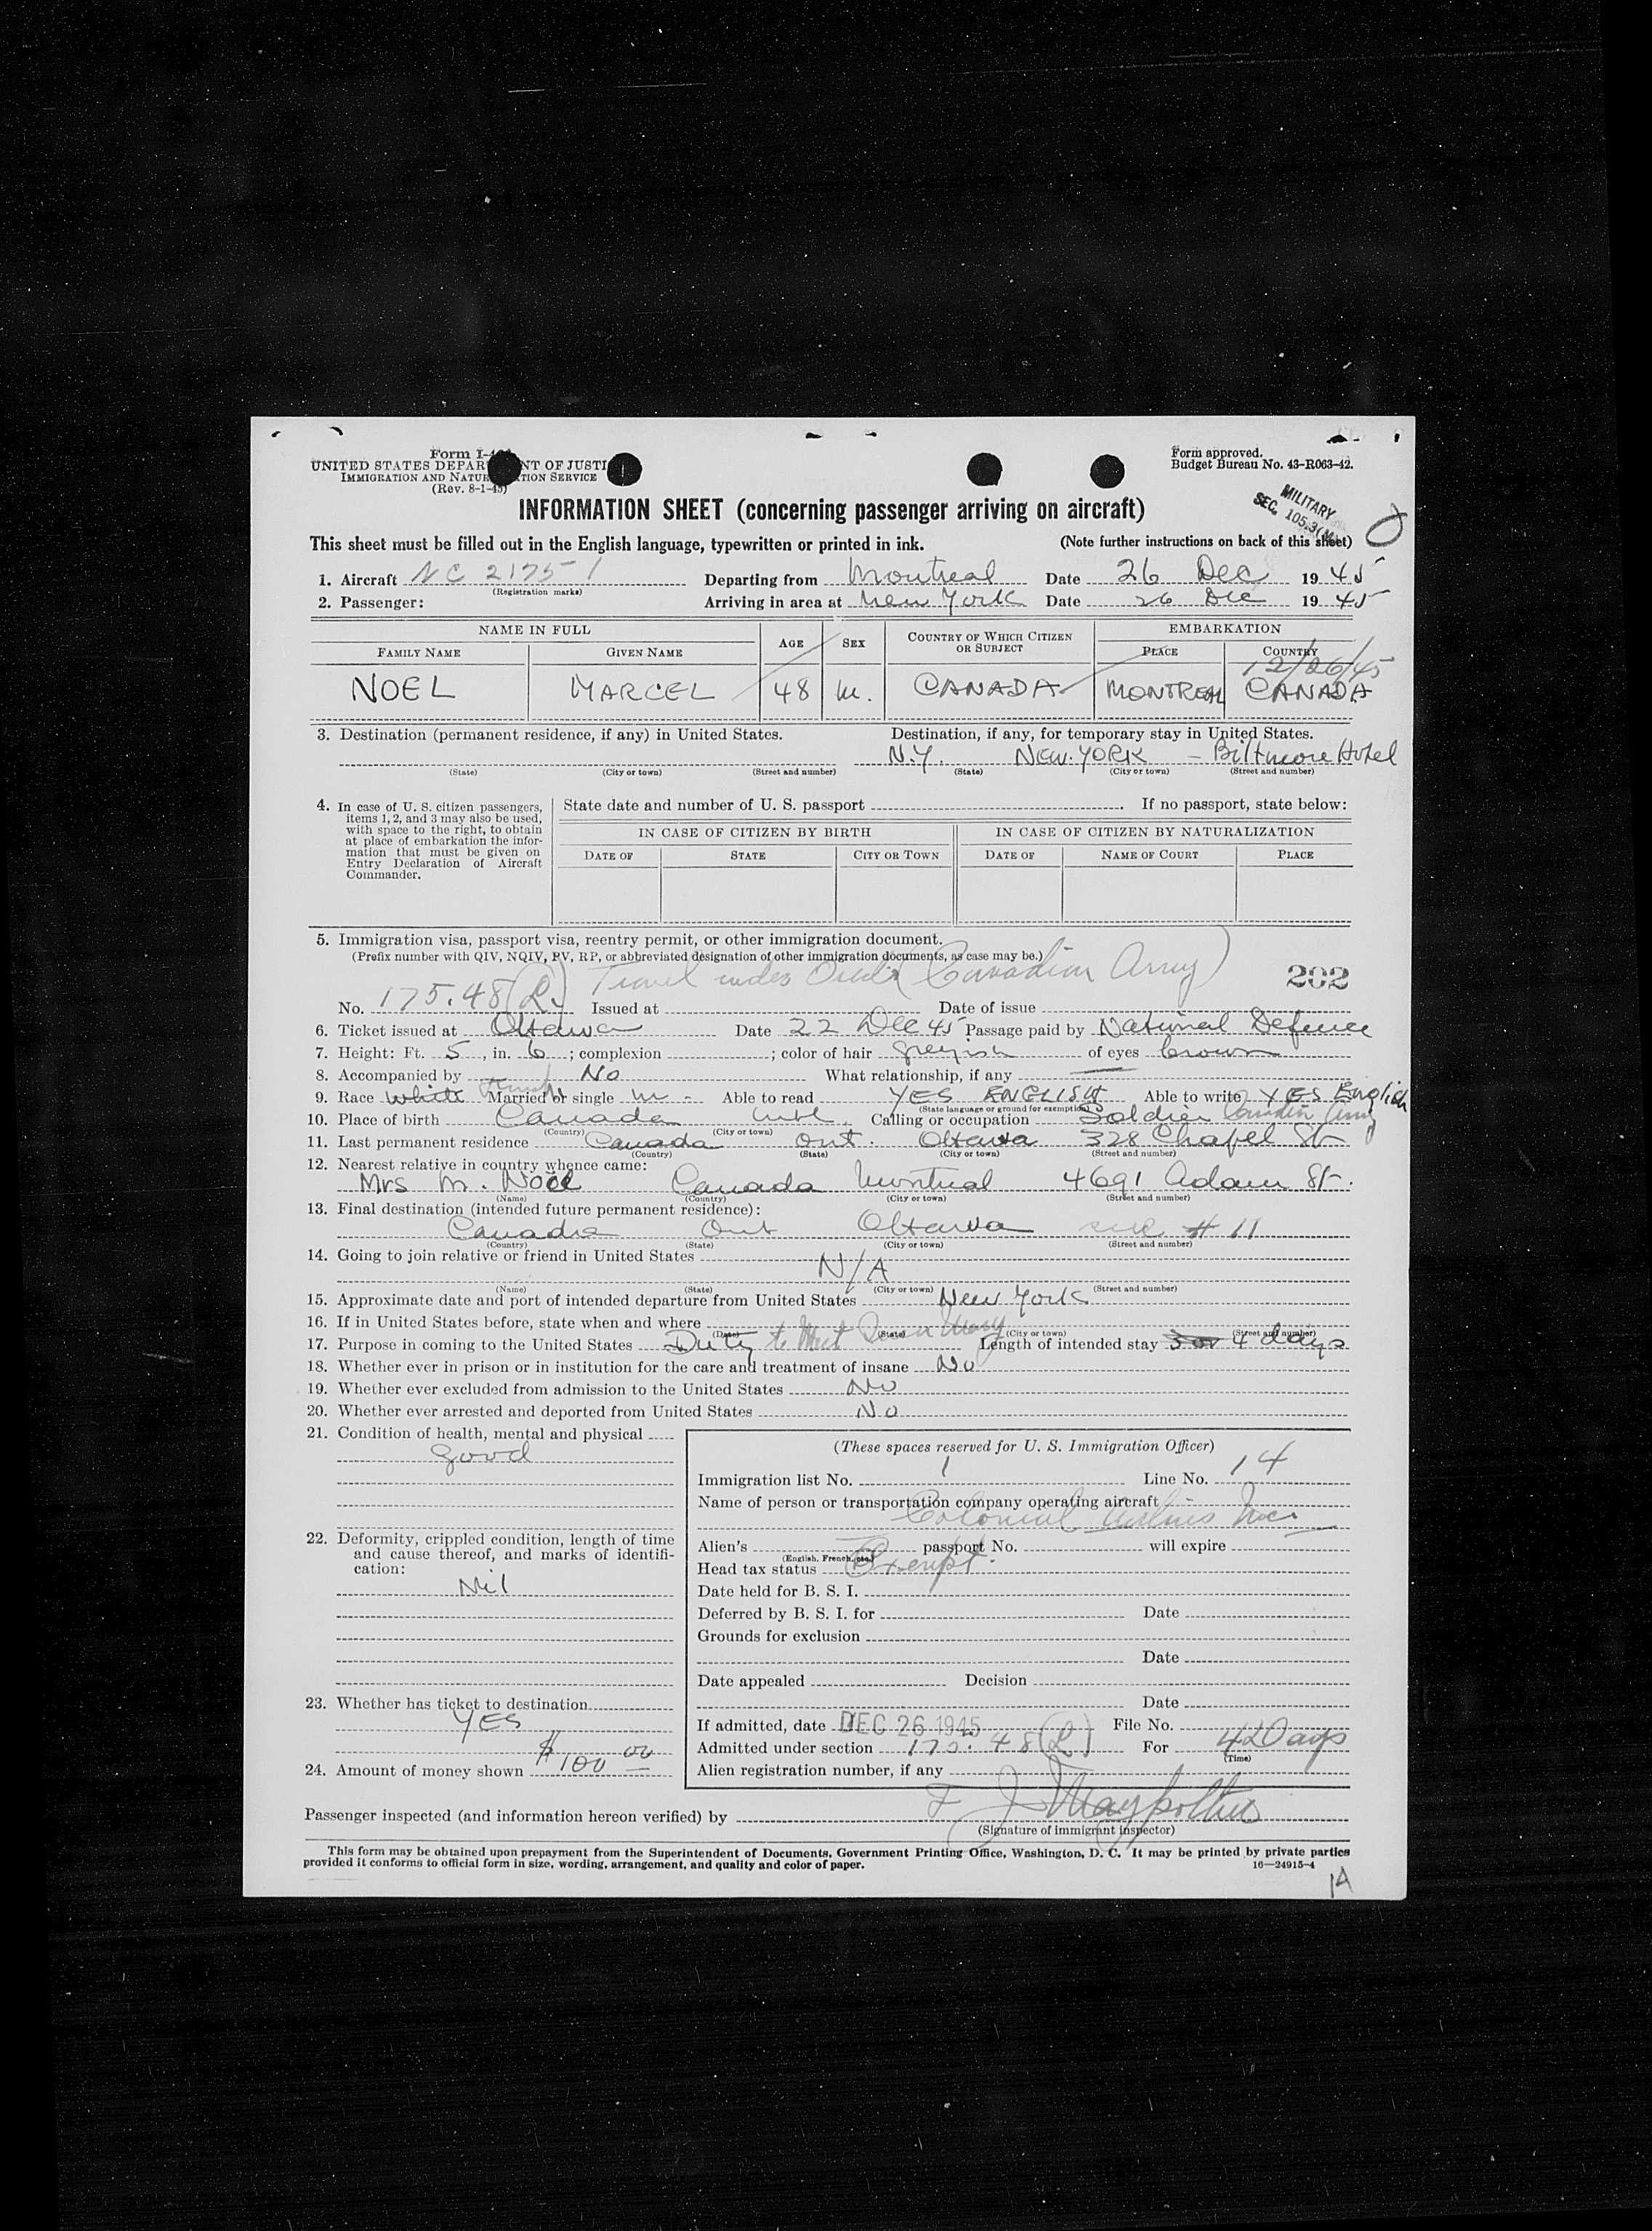 Form I-4
UNITED STATES DEPARTMENT OF JUSTICE
IMMIGRATION AND NATURALIZATION SERVICE
(Rev. 8-1-45)
Form approved.
Budget Bureau No. 43-R063-42.
INFORMATION SHEET (concerning passenger arriving on aircraft)
MILITARY
SEC. 105.3(
This sheet must be filled out in the English language, typewritten or printed in ink. (Note further instructions on back of this sheet)
1. Aircraft NC 21751 Departing from Montreal Date 26 Dec 1945
(Registration marks)
2. Passenger: Arriving in area at New York Date 26 Dec 1945
NAME IN FULL AGE SEX COUNTRY OF WHICH CITIZEN OR SUBJECT EMBARKATION
FAMILY NAME GIVEN NAME PLACE COUNTRY
12/26/45
NOEL MARCEL 48 M. CANADA MONTREAL CANADA
3. Destination (permanent residence, if any) in United States. Destination, if any, for temporary stay in United States.
N.Y. NEW YORK - Biltmore Hotel
(State) (City or town) (Street and number) (State) (City or town) (Street and number)
4. In case of U. S. citizen passengers, items 1, 2, and 3 may also be used, with space to the right, to obtain at place of embarkation the information that must be given on Entry Declaration of Aircraft Commander.
State date and number of U. S. passport . If no passport, state below:
IN CASE OF CITIZEN BY BIRTH IN CASE OF CITIZEN BY NATURALIZATION
DATE OF STATE CITY OR TOWN DATE OF NAME OF COURT PLACE
5. Immigration visa, passport visa, reentry permit, or other immigration document.
(Prefix number with QIV, NQIV, PV, RP, or abbreviated designation of other immigration documents, as case may be.)
Travel under Orders (Canadian Army) 202
No. 175.48(L) Issued at Date of issue
6. Ticket issued at Ottawa Date 22 Dec 45 Passage paid by National Defence
7. Height: Ft. 5, in. 6; complexion ; color of hair greyish of eyes brown
8. Accompanied by No What relationship, if any
9. Race White French Married or single M - Able to read YES ENGLISH Able to write YES English
(State language or ground for exemption)
10. Place of birth Canada Mtl Calling or occupation Soldier Canadian Army
(Country) (City or town)
11. Last permanent residence Canada Ont. Ottawa 328 Chapel St
(Country) (State) (City or town) (Street and number)
12. Nearest relative in country whence came:
Mrs M. Noël Canada Montreal 4691 Adam St.
(Name) (Country) (City or town) (Street and number)
13. Final destination (intended future permanent residence):
Canada Ont Ottawa see # 11
(Country) (State) (City or town) (Street and number)
14. Going to join relative or friend in United States
N/A
(Name) (State) (City or town) (Street and number)
15. Approximate date and port of intended departure from United States New York
16. If in United States before, state when and where
(Date) (State) (City or town) (Street and number)
17. Purpose in coming to the United States Duty to Meet Queen Mary Length of intended stay 3 or 4 days
18. Whether ever in prison or in institution for the care and treatment of insane No
19. Whether ever excluded from admission to the United States No
20. Whether ever arrested and deported from United States No
21. Condition of health, mental and physical
good
22. Deformity, crippled condition, length of time and cause thereof, and marks of identification:
Nil
23. Whether has ticket to destination
YES
24. Amount of money shown $100.00
(These spaces reserved for U. S. Immigration Officer)
Immigration list No. 1 Line No. 14
Name of person or transportation company operating aircraft
Colonial Airlines Inc.
Alien's passport No. will expire
(English, French, etc.)
Head tax status Exempt.
Date held for B. S. I.
Deferred by B. S. I. for Date
Grounds for exclusion
Date
Date appealed Decision
Date
If admitted, date DEC 26 1945 File No.
Admitted under section 175.48(L) For 4 Days
(Time)
Alien registration number, if any
Passenger inspected (and information hereon verified) by F J
(Signature of immigrant inspector)
This form may be obtained upon prepayment from the Superintendent of Documents, Government Printing Office, Washington, D. C. It may be printed by private parties
provided it conforms to official form in size, wording, arrangement, and quality and color of paper. 16—24915-4
14